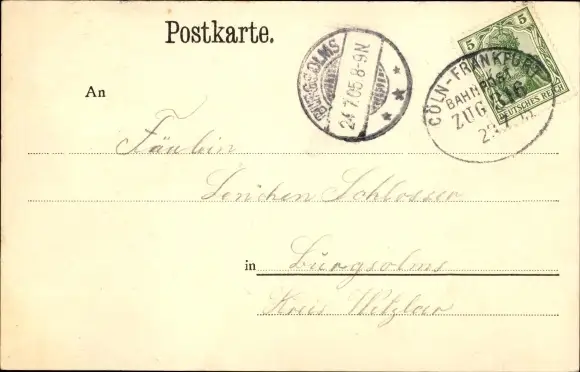 Postkarte.
BURGSOLMS
24.7.05.8-9N.
5
DEUTSCHES REICH
CÖLN-FRANKFURT
BAHNPOST
ZUG 316
23.7.
An
Fräulein
Lenchen Schlosser
in Burgsolms
Kreis Wetzlar